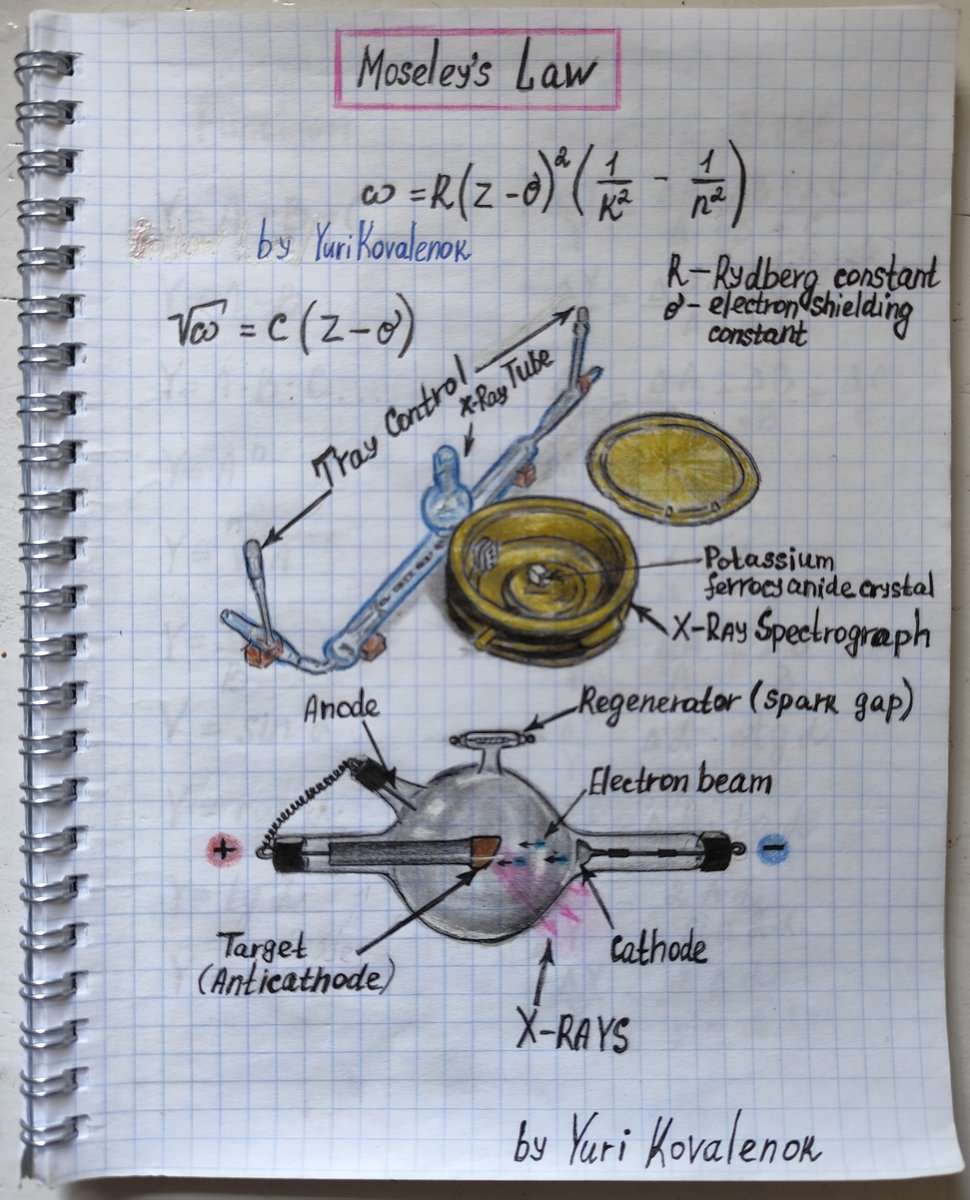 Moseley's Law
ω = R(Z - σ)²(1/K² - 1/n²)
by Yuri Kovalenok
R - Rydberg constant
σ - electron shielding
constant
√ω = C(Z - σ)
Tray Control
X-Ray Tube
Potassium
ferrocyanide crystal
X-Ray Spectrograph
Anode
Regenerator (spark gap)
Electron beam
+
-
Target
(Anticathode)
Cathode
X-RAYS
by Yuri Kovalenok